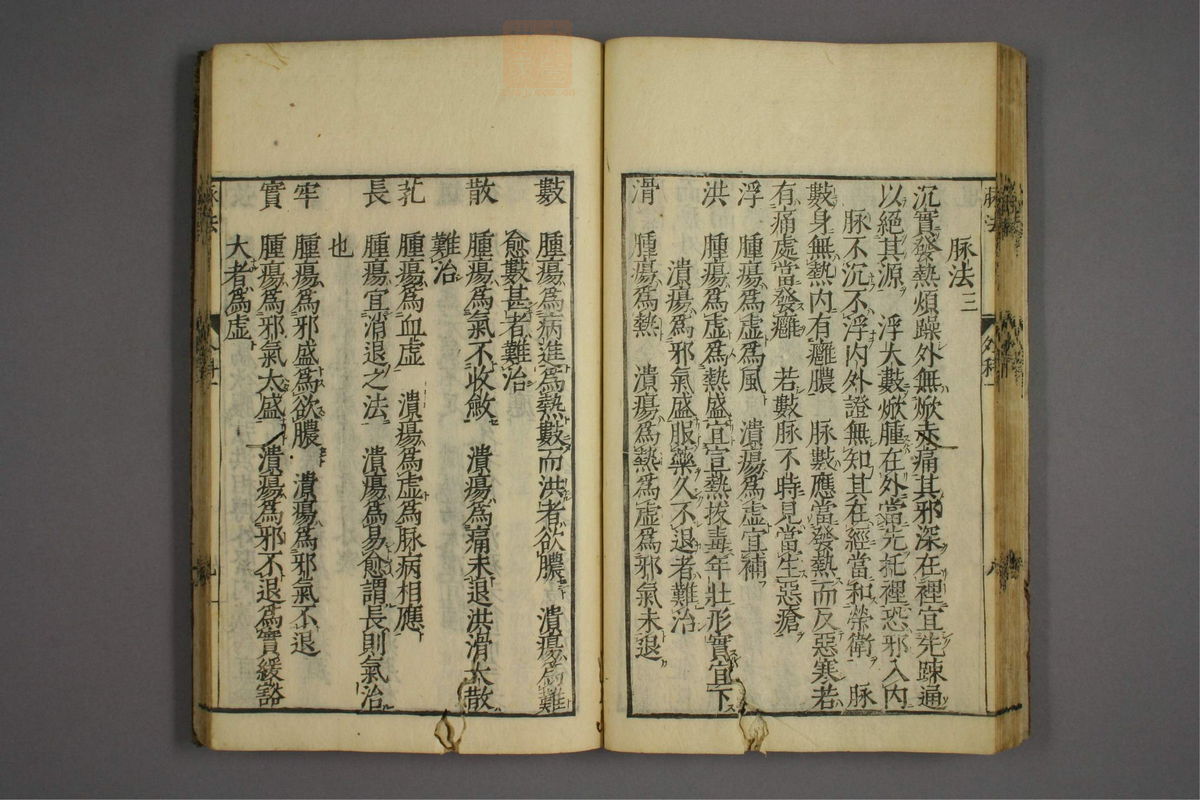 脉法三
沉實發熱煩躁外無焮赤痛其邪深在裡宜先疎通
以絕其源　浮大數焮腫在外當先托裡恐邪入內
脉不沉不浮內外證無知其在經當和榮衛　脉
數身無熱內有癰膿　脉數應當發熱而反惡寒若
有痛處當發癰　若數脉不時見當生惡瘡
浮　腫瘍爲虛爲風　潰瘍爲虛宜補
洪　腫瘍爲虛爲熱盛宜宣熱拔毒年壯形實宜下
潰瘍爲邪氣盛服藥久不退者難治
滑　腫瘍爲熱　潰瘍爲熱爲虛爲邪氣未退
數　腫瘍爲病進爲熱數而洪者欲膿　潰瘍爲難
愈數甚者難治
散　腫瘍爲氣不收斂　潰瘍爲痛未退洪滑大散
難治
芤　腫瘍爲血虛　潰瘍爲虛爲脉病相應
長　腫瘍宜消退之法　潰瘍爲易愈謂長則氣治
也
牢　腫瘍爲邪盛爲欲膿　潰瘍爲邪氣不退
實　腫瘍爲邪氣太盛　潰瘍爲邪不退爲實緩谿
大者爲虛
脉法
外科一
九